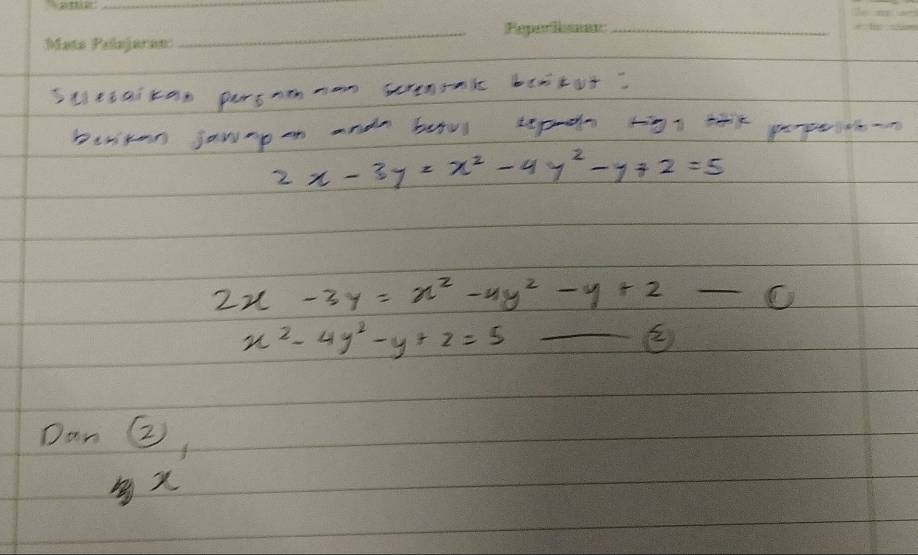 Nama:
Mata Pelajaran:
Peperiksaan:
Selesaikan persamaan serentak berikut :
berikan jawapan anda betul kepada tiga titik perpuluhan
2x - 3y = x² - 4y² - y + 2 = 5
2x - 3y = x² - 4y² - y + 2 — ①
x² - 4y² - y + 2 = 5 — ②
Dari ②,
x